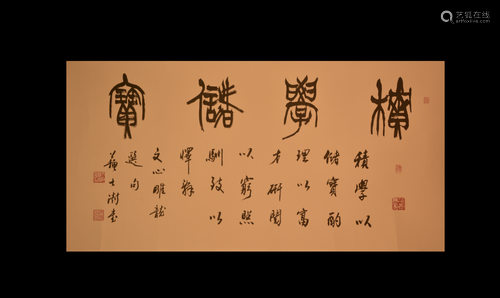 積學儲寶
積學以
儲寶酌
理以富
才研閱
以窮照
馴致以
懌辭
文心雕龍
選句
蘇士澍書
艺狐在线
artfoxlive.com